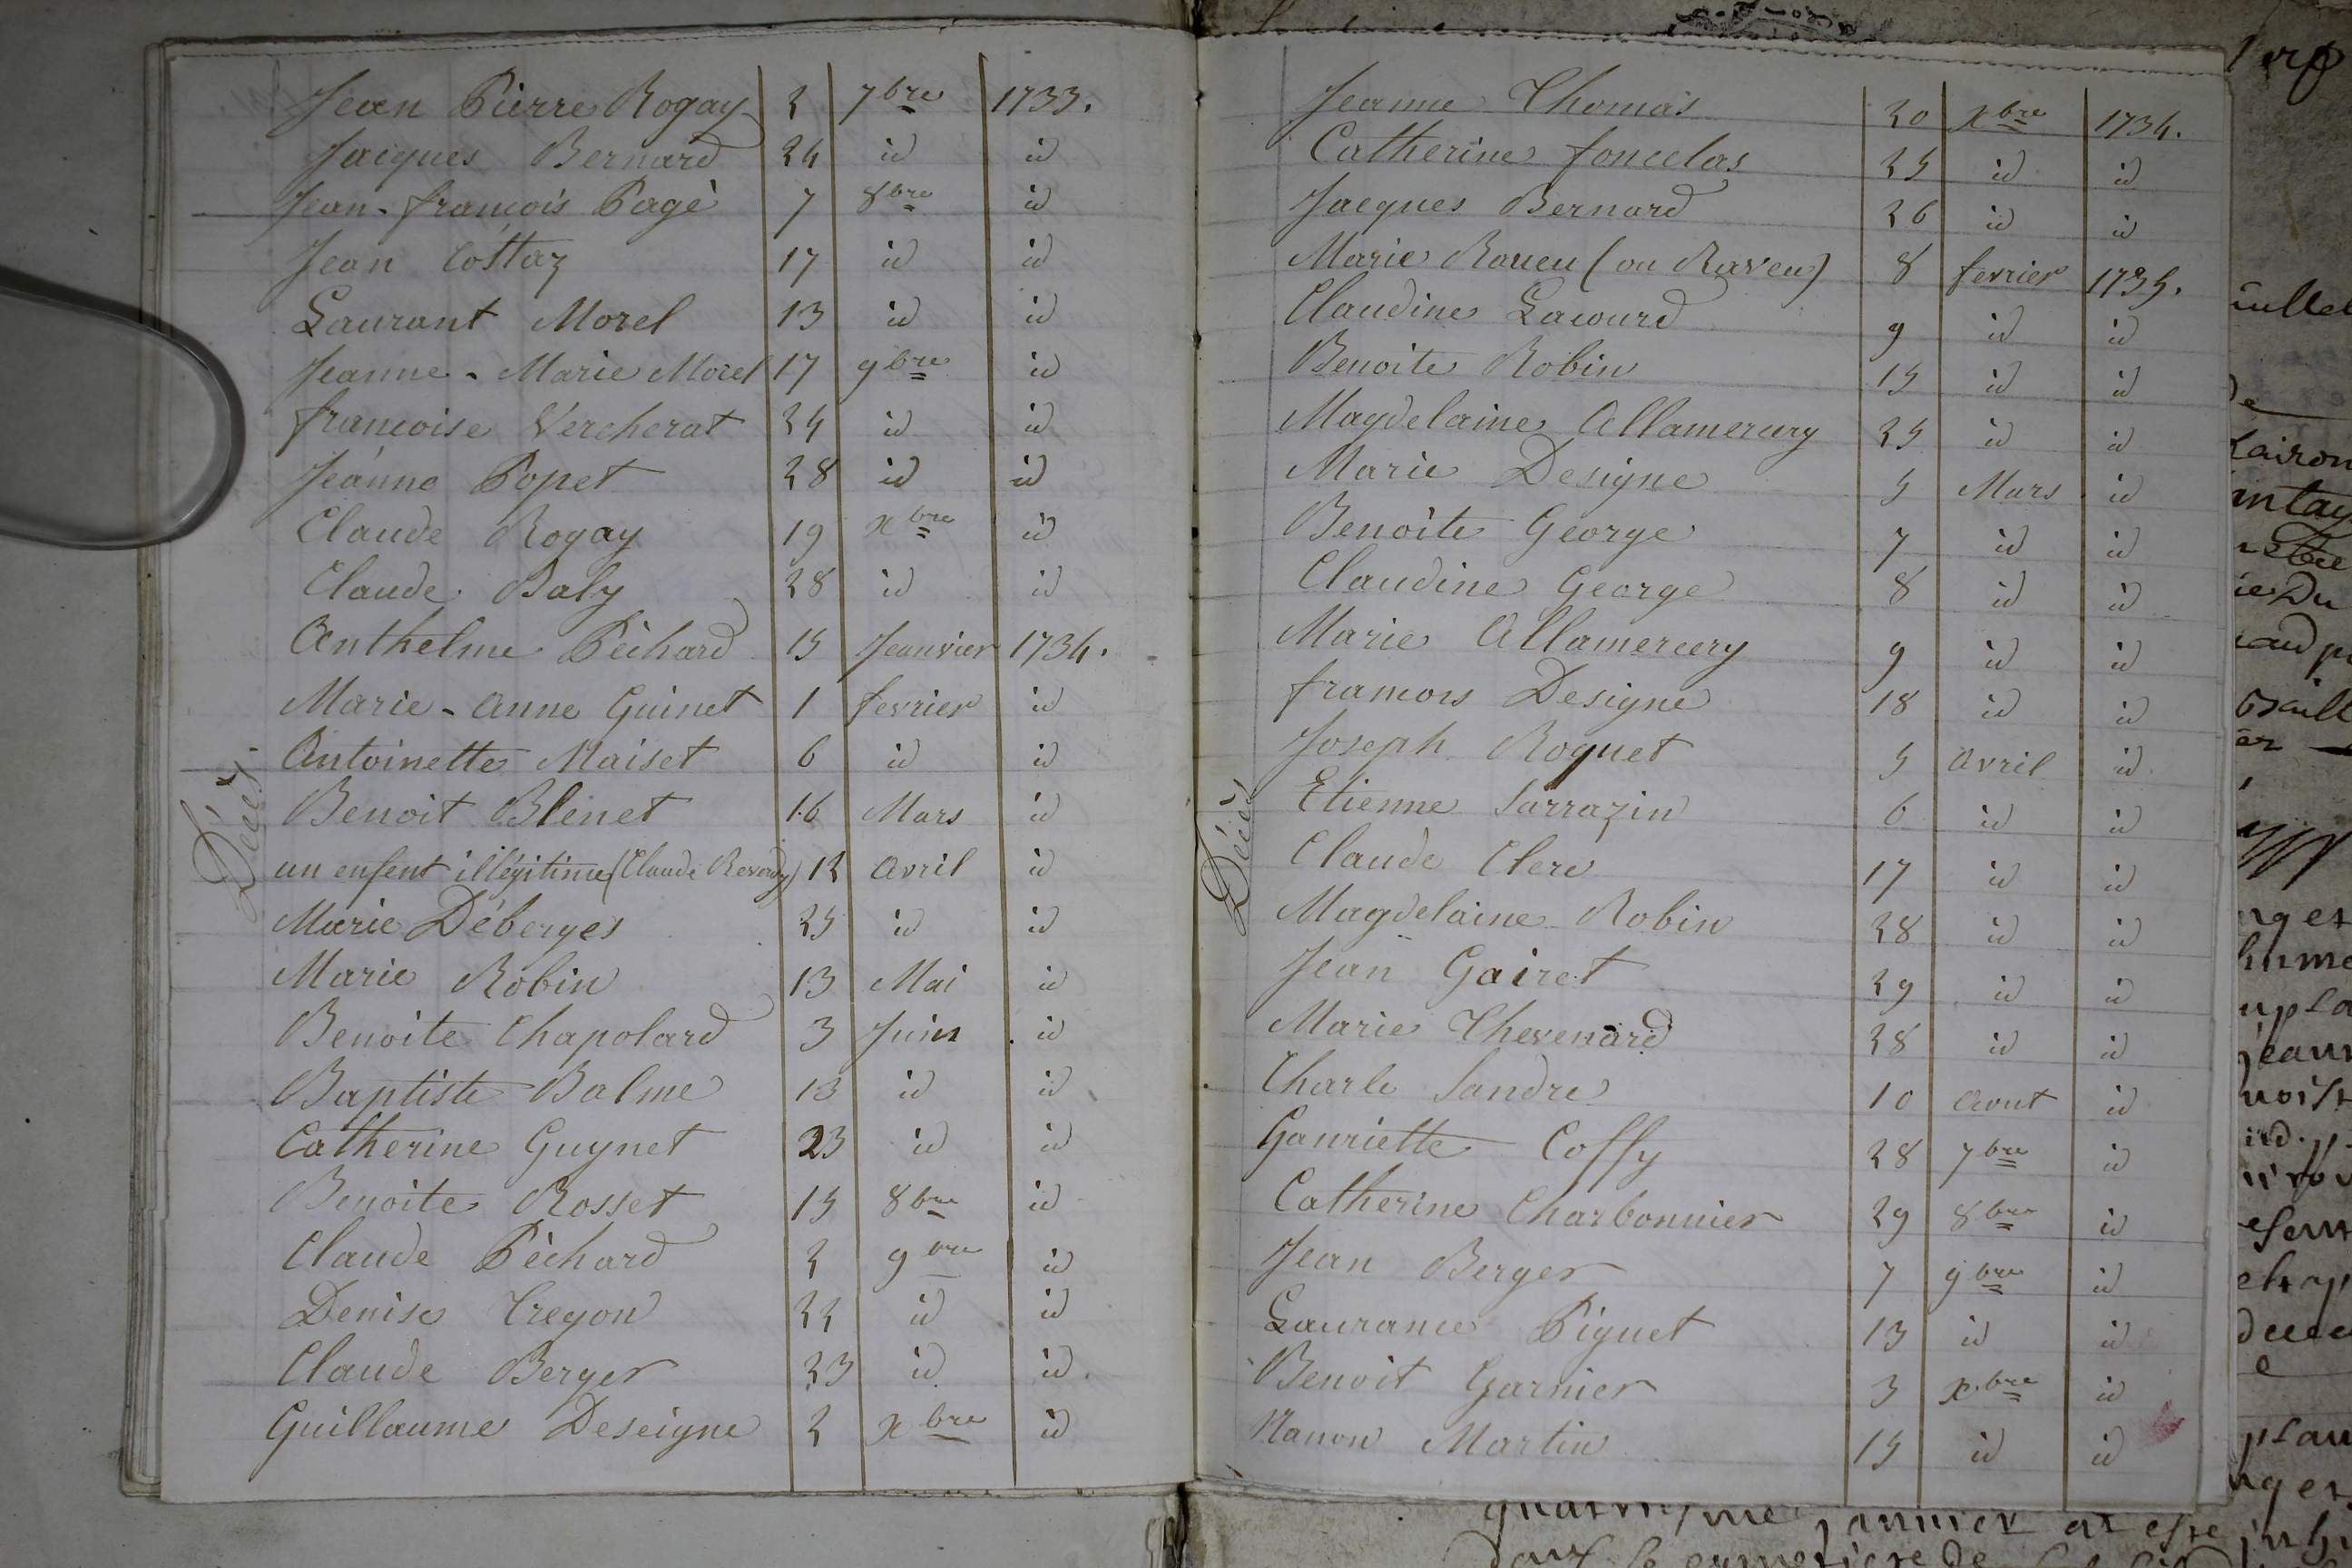 Jean Pierre Rogay 2 7bre 1733.
Jacques Bernard 24 id id
Jean-françois Pagè 7 8bre id
Jean Cottaz 17 id id
Laurant Morel 13 id id
Jeanne-Marie Morel 17 9bre id
françoise Vercherat 24 id id
Jeanne Popet 28 id id
Claude Rogay 19 xbre id
Claude Baly 28 id id
Anthelme Péchard 15 Jeanvier 1734.
Marie-Anne Guinet 1 fevrier id
Antoinette Maiset 6 id id
Benoit Blenet 16 Mars id
un enfent illégitime (Claude Reverdy) 12 Avril id
Marie Déberges 25 id id
Marie Robin 13 Mai id
Benoite Chapolard 3 Juin id
Baptiste Balme 13 id id
Catherine Guynet 23 id id
Benoite Rosset 15 8bre id
Claude Péchard 2 9bre id
Denise Cregon 22 id id
Claude Berger 23 id id.
Guillaume Deseigne 2 xbre id
Décès.
Jeanne Thomas 20 xbre 1734.
Catherine foncelas 25 id id
Jacques Bernard 26 id id
Marie Raveu (ou Raveu) 8 fevrier 1735.
Claudine Lacourd 9 id id
Benoite Robin 15 id id
Magdelaine Allamercery 25 id id
Marie Designe 5 Mars id
Benoite George 7 id id
Claudine George 8 id id
Marie Allamercery 9 id id
francois Designe 18 id id
Joseph Roguet 5 Avril id
Etienne Sarrazin 6 id id
Claude Clerc 17 id id
Magdelaine Robin 28 id id
Jean Gairet 29 id id
Marie Thevenard 28 id id
Charle Sandre 10 Aout id
Ganriette Coffy 28 7bre id
Catherine Charbonnier 29 8bre id
Jean Berger 7 9bre id
Laurance Piguet 13 id id
Benoit Garnier 3 xbre id
Nanon Martin 15 id id
Décès